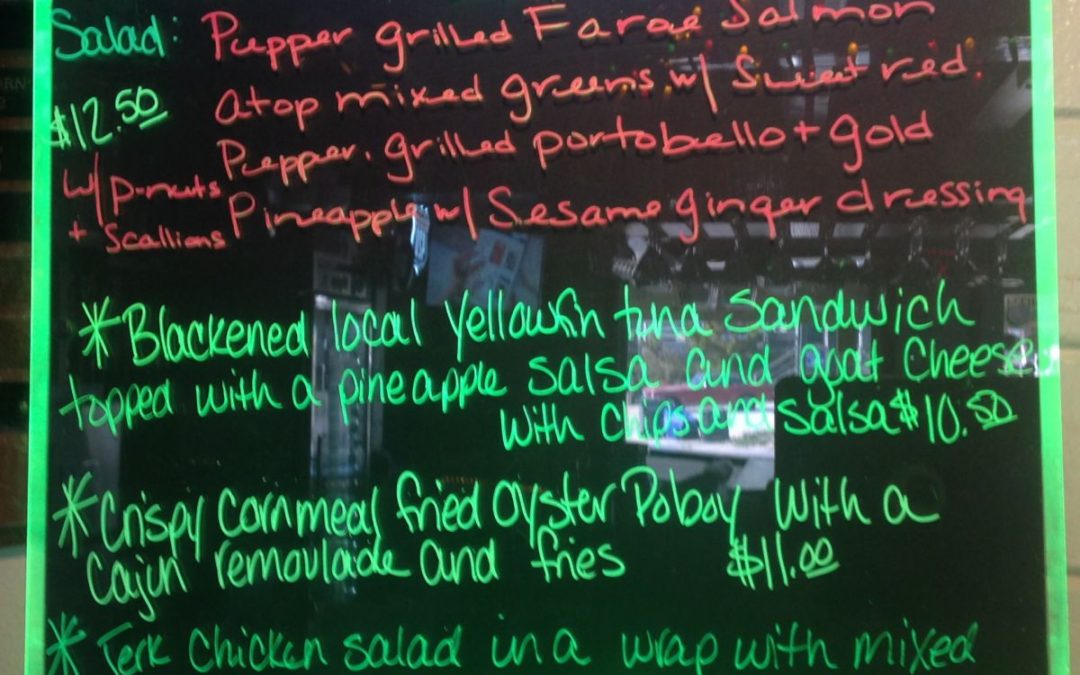 Salad: Pepper grilled Faroe Salmon
$12.50 atop mixed greens w/ Sweet red
w/ P-nuts Pepper, grilled portobello + gold
+ Scallions Pineapple w/ Sesame ginger dressing
*Blackened local Yellowfin tuna Sandwich
topped with a pineapple salsa and goat Cheese
with Chips and salsa $10.50
*Crispy cornmeal fried Oyster Poboy with a
Cajun remoulade and fries $11.00
*Jerk Chicken salad in a wrap with mixed